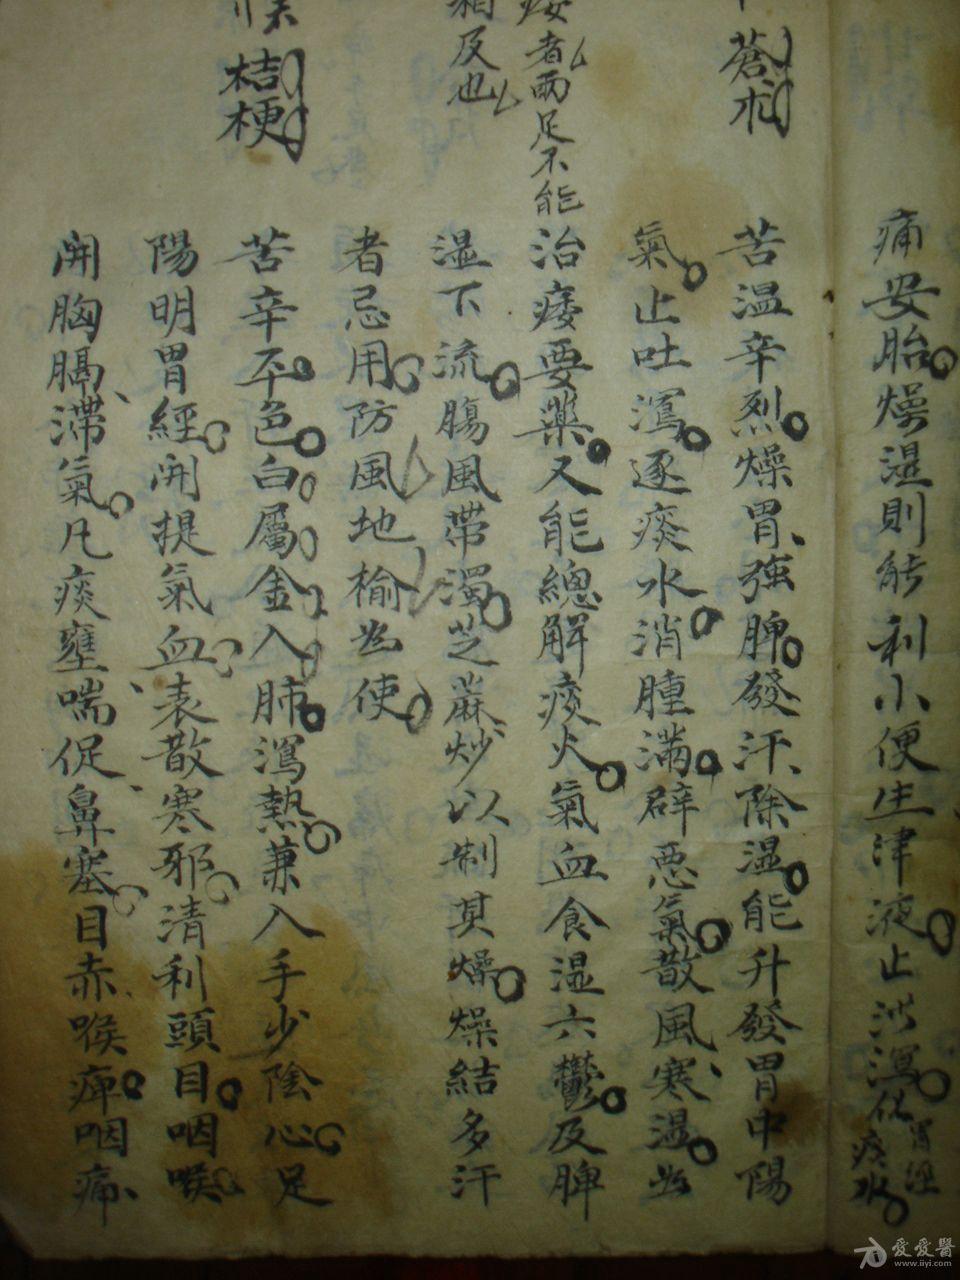 痛安胎燥濕則能利小便生津液止泄瀉化胃經痰水
蒼术
苦温辛烈燥胃強脾發汗除湿能升發胃中陽
氣止吐瀉逐痰水消腫滿辟惡氣散風寒湿為
治痿要藥又能總解痰火氣血食湿六鬱及脾
痿者兩足不能
相及也
湿下流腸風帶濁芝蔴炒以制其燥燥結多汗
者忌用防風地榆為使
桔梗
苦辛平色白屬金入肺瀉熱兼入手少陰心足
陽明胃經開提氣血表散寒邪清利頭目咽喉
開胸膈滯氣凡痰壅喘促鼻塞目赤喉痺咽痛
愛愛醫
www.iiyi.com